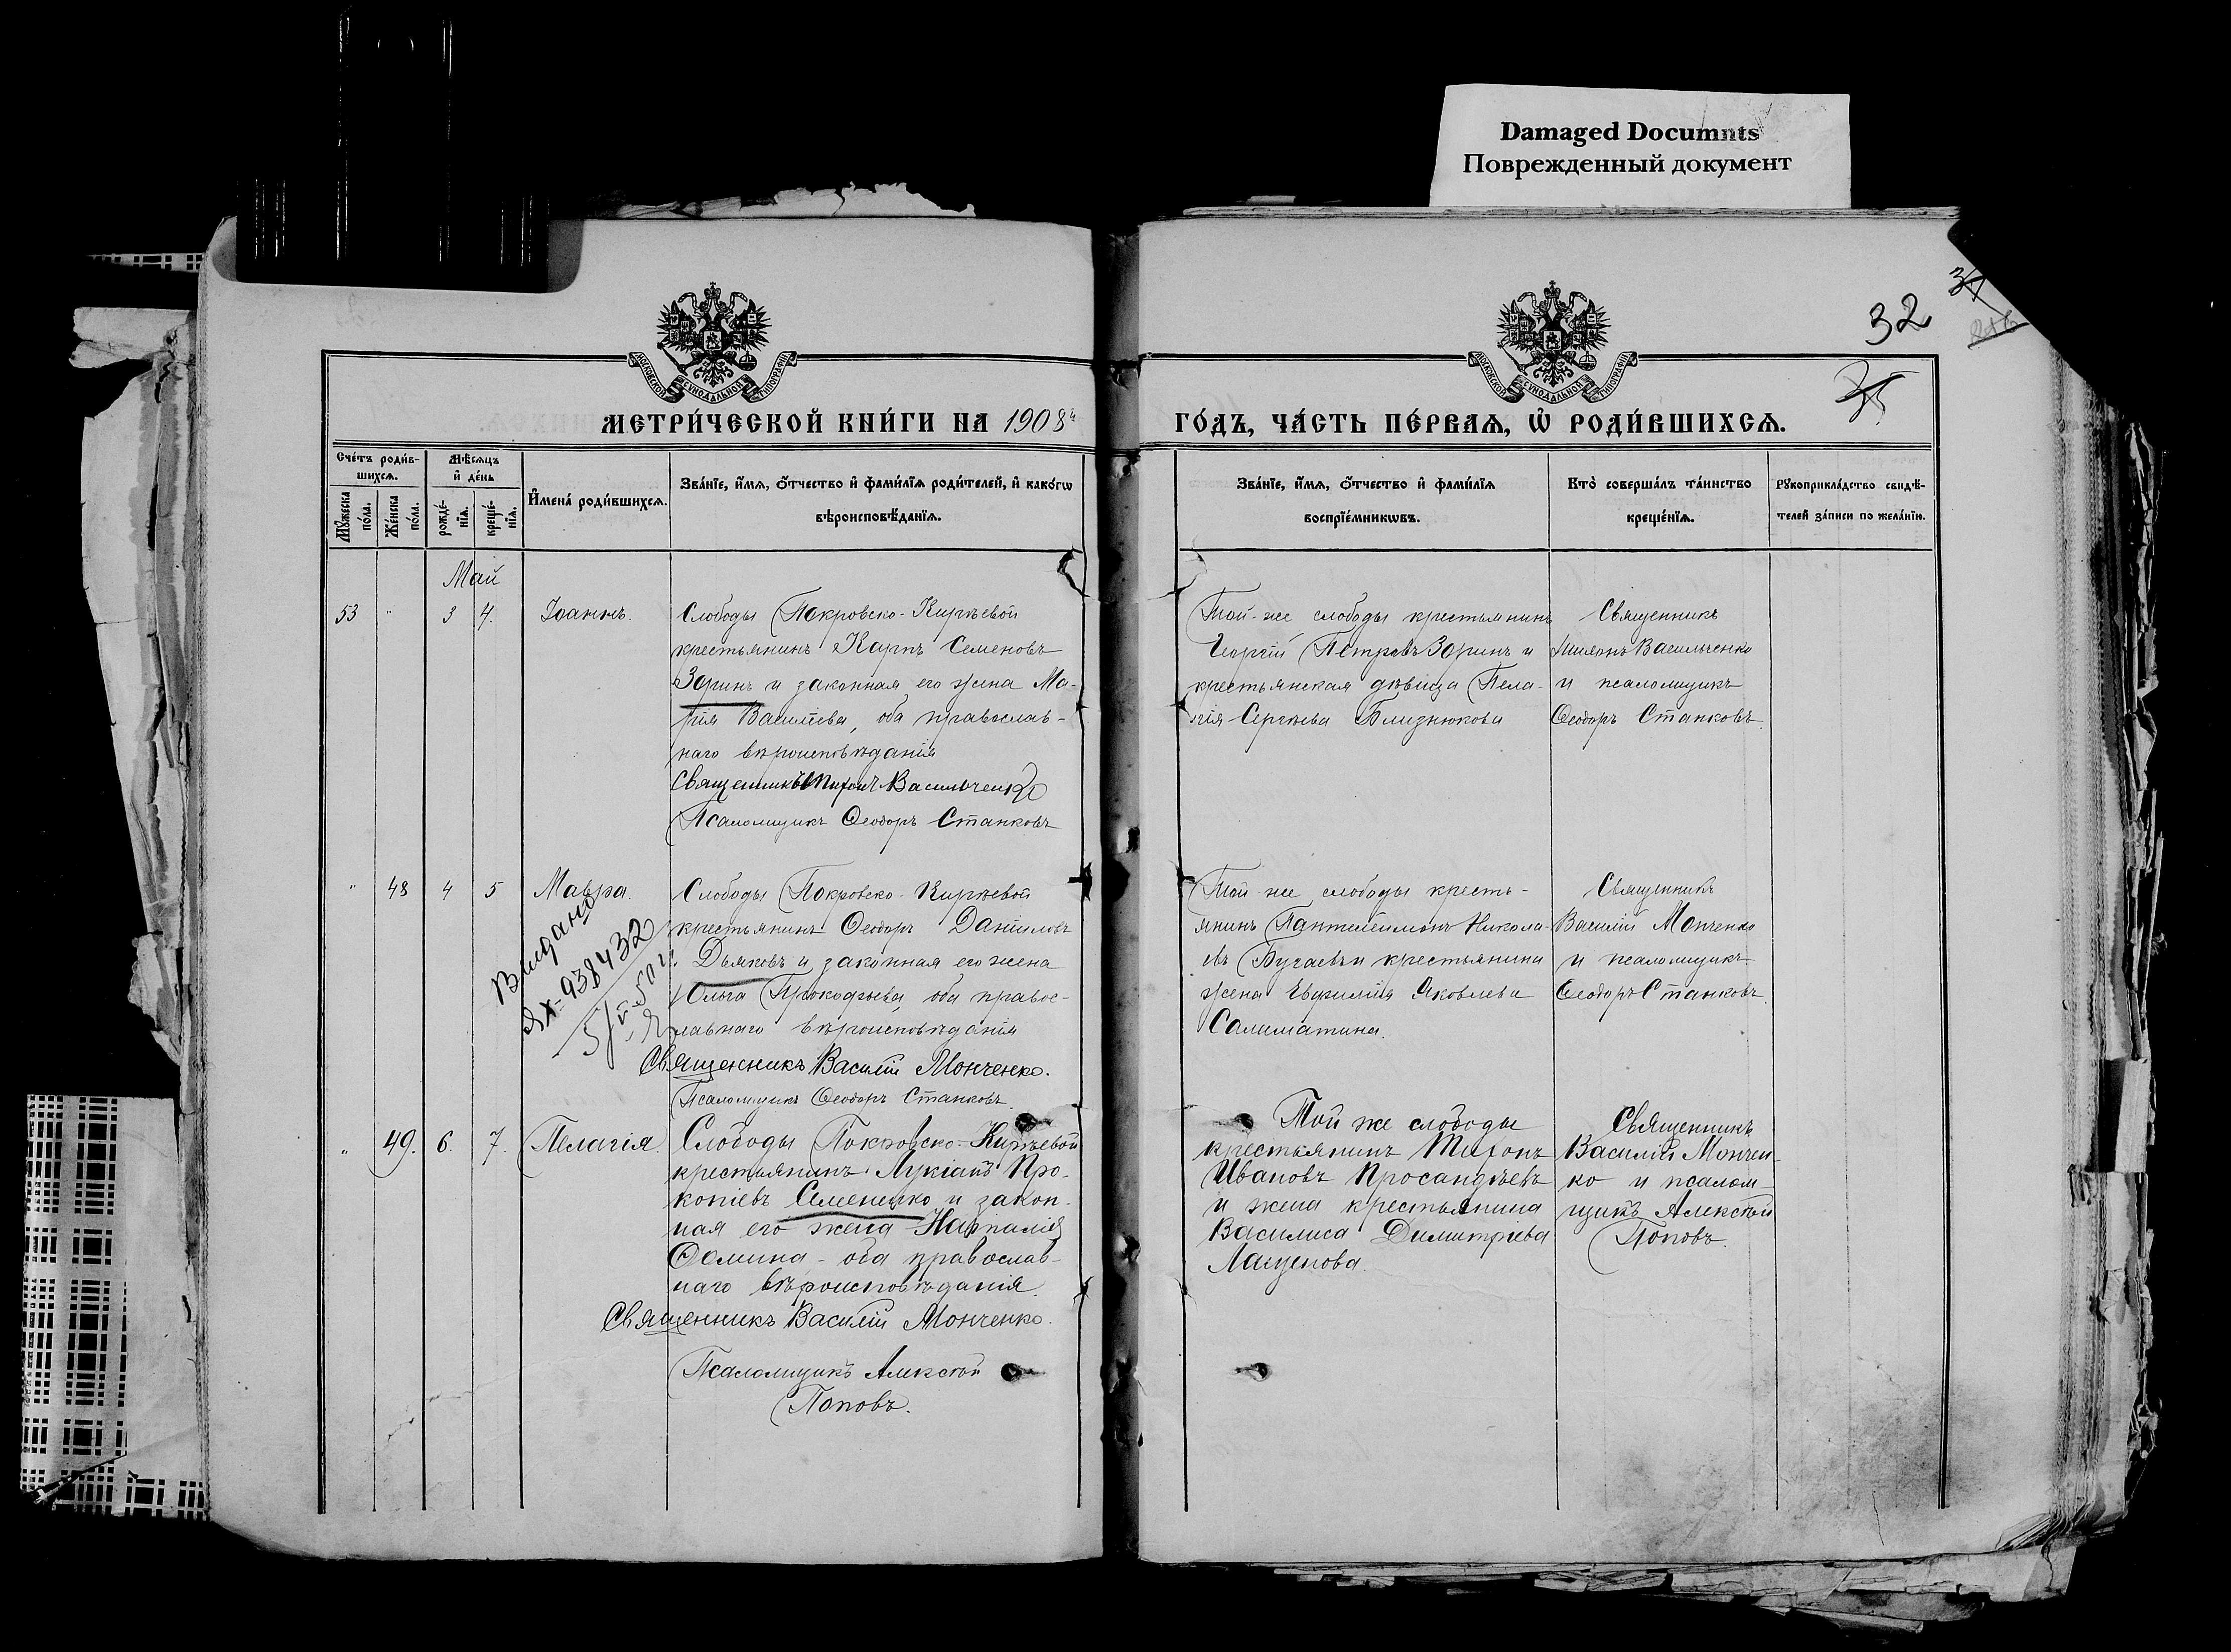 Damaged Documnts
Поврежденный документ
32
31
МОСКОВСКОЙ СѴНОДАЛЬНОЙ ТИПОГРАФІИ
МОСКОВСКОЙ СѴНОДАЛЬНОЙ ТИПОГРАФІИ
МЕТРИ́ЧЕСКОЙ КНИ́ГИ НА 1908й
ГО́ДЪ, ЧА́СТЬ ПЕ́РВАѦ, Ѡ҆ РОДИ́ВШИХСѦ.
Сче́тъ роди́в-
шихсѧ.
Мꙋ́жеска по́ла.
Же́нска по́ла.
Мѣ́сѧцъ
и҆ де́нь
рожде́-
нїѧ.
креще́-
нїѧ.
И҆мена̀ роди́вшихсѧ.
Зва́нїе, и҆́мѧ, ѻ҆́тчество и҆ фами́лїѧ роди́телей, и҆ како́гѡ
вѣроисповѣ́данїѧ.
Зва́нїе, и҆́мѧ, ѻ҆́тчество и҆ фами́лїѧ
воспрїе́мникѡвъ.
Кто̀ соверша́лъ та́инство
креще́нїѧ.
Рꙋкоприкла́дство свидѣ́-
телей за́писи по жела́нїю.
Май
53 " 3 4. Іоаннъ.
Слободы Покровско-Кирѣевой
крестьянинъ Карпъ Семеновъ
Зоринъ и законная его жена Ма-
рія Васильева, оба православ-
наго вѣроисповѣданія
Священникъ Василь­ченко
Псаломщикъ Ѳеодоръ Станковъ
Той-же слободы крестьянинъ
Георгій Петровъ Зоринъ и
крестьянская дѣвица Пела-
гія Сергѣева Близнюкова
Священникъ
Василь­ченко
и псаломщикъ
Ѳеодоръ Станковъ.
" 48 4 5 Мавра.
Выдано
ЯХ-938432
Слободы Покровско-Кирѣевой
крестьянинъ Ѳеодоръ Даніиловъ
Дьяковъ и законная его жена
Ольга Прокофьева, оба правос-
лавнаго вѣроисповѣданія
Священникъ Василій Монченко.
Псаломщикъ Ѳеодоръ Станковъ.
Той же слободы кресть-
янинъ Пантелеимонъ Никола-
евъ Бугаевъ и крестьянина
жена Евфимія Яковлева
Салиматина.
Священникъ
Василій Монченко
и псаломщикъ
Ѳеодоръ Станковъ.
" 49. 6. 7. Пелагія.
Слободы Покровско-Кирѣевой
крестьянинъ Лукіанъ Про-
копіевъ Семененко и закон-
ная его жена Наталія
Ѳомина - оба православ-
наго вѣроисповѣданія.
Священникъ Василій Монченко.
Псаломщикъ Алексѣй
Поповъ.
Той же слободы
крестьянинъ Тихонъ
Ивановъ Просандѣевъ
и жена крестьянина
Василиса Димитріева
Лащенова.
Священникъ
Василій Мончен-
ко и псалом-
щикъ Алексѣй
Поповъ.